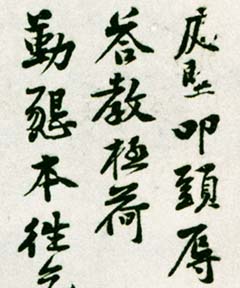 庭堅叩頭辱
荅教極荷
勤懇本往